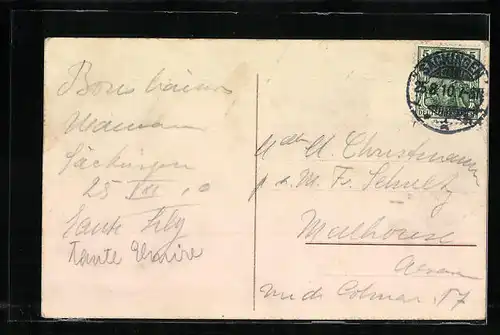 Bons baisers
Maman
Säckingen
25 VIII 10
Tante Lily
Tante Elmire
SÄCKINGEN
25.8.10.7-8N
5 5
Mlle M. Christmann
p. a. M. F. Schultz
Mulhouse
Alsace
rue de Colmar 57